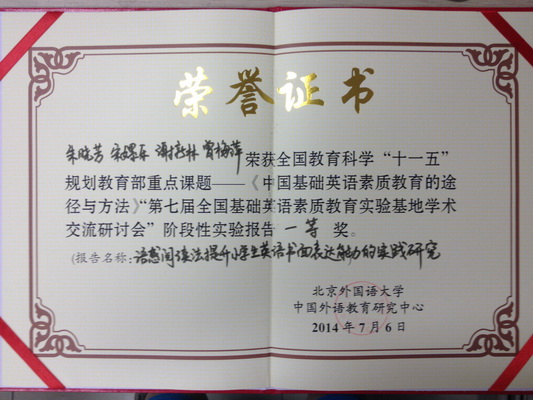 荣誉证书
朱晓芳 荣获全国教育科学“十一五”
规划教育部重点课题——《中国基础英语素质教育的途
径与方法》“第七届全国基础英语素质教育实验基地学术
交流研讨会”阶段性实验报告 一等 奖。
(报告名称: 语感阅读法提升小学生英语书面表达能力的实践研究
北京外国语大学
中国外语教育研究中心
2014年7月6日